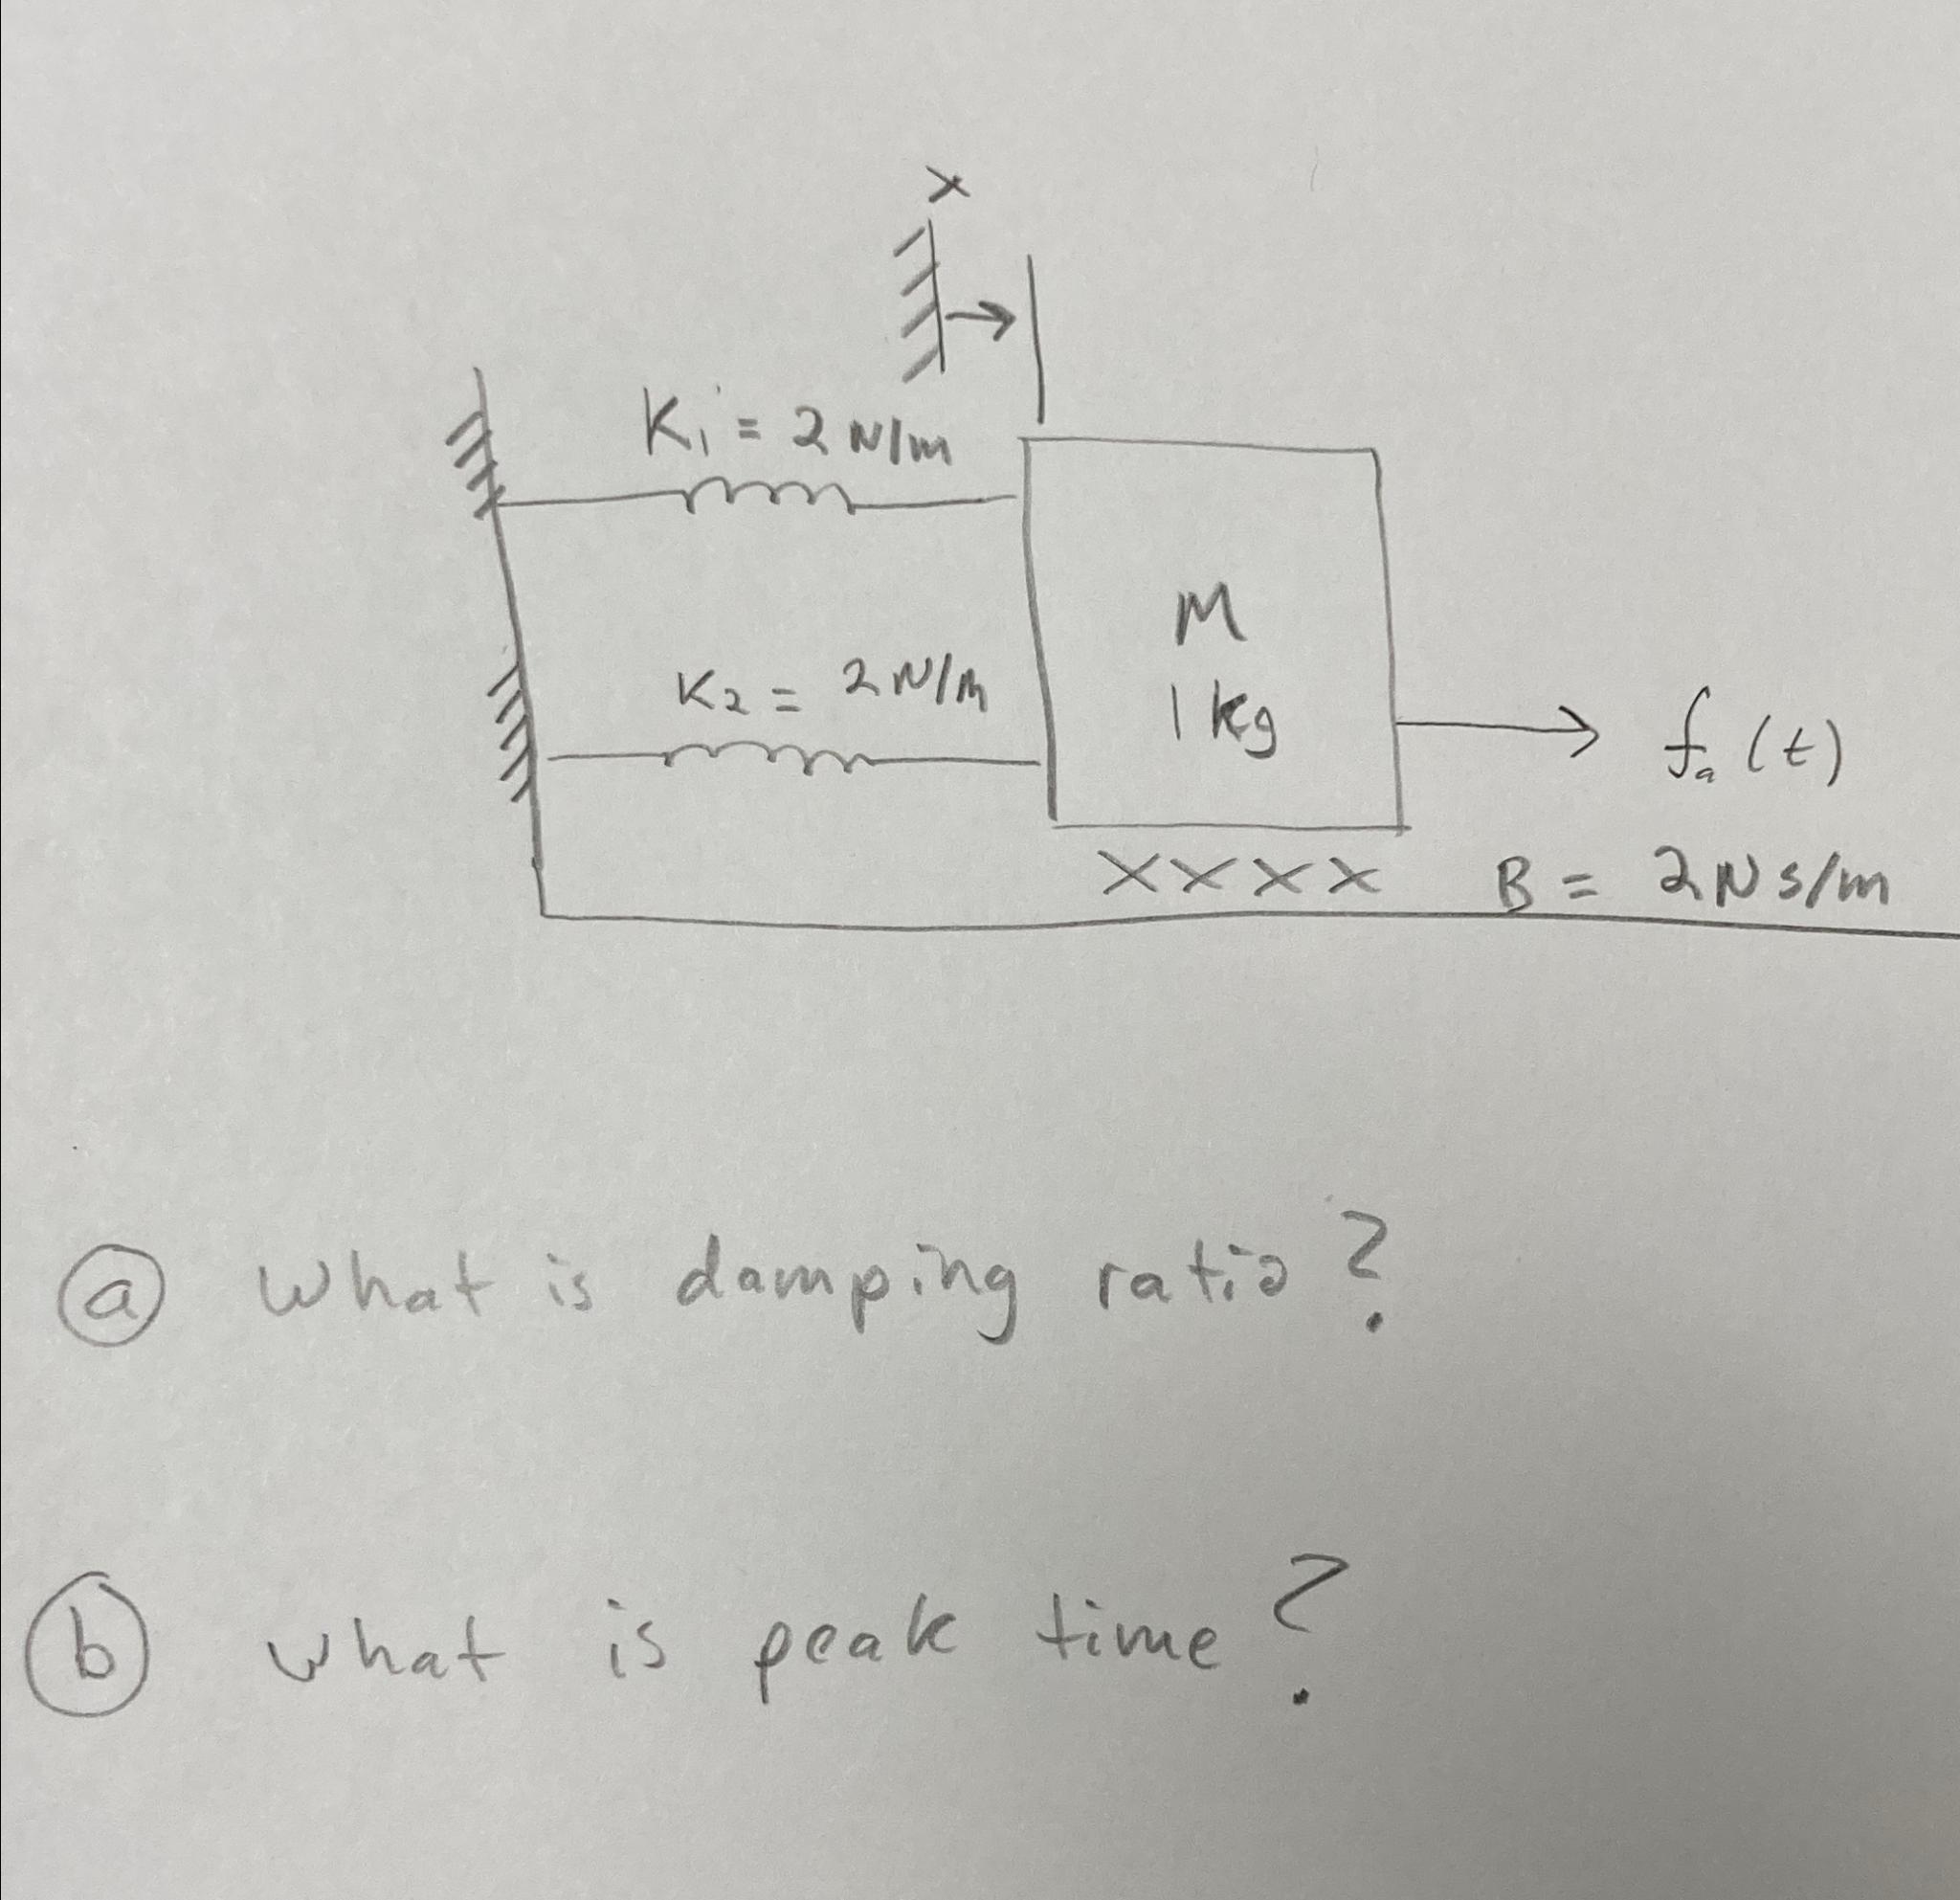 x
K₁ = 2 N/m
M
K₂ = 2 N/m
1 kg
fₐ (t)
XXXX B = 2 N s/m
ⓐ What is damping ratio?
ⓑ what is peak time?